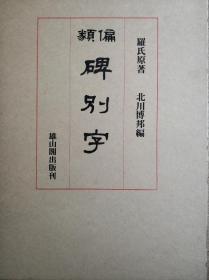 羅氏原著
北川博邦編
偏類
碑別字
雄山閣出版刊